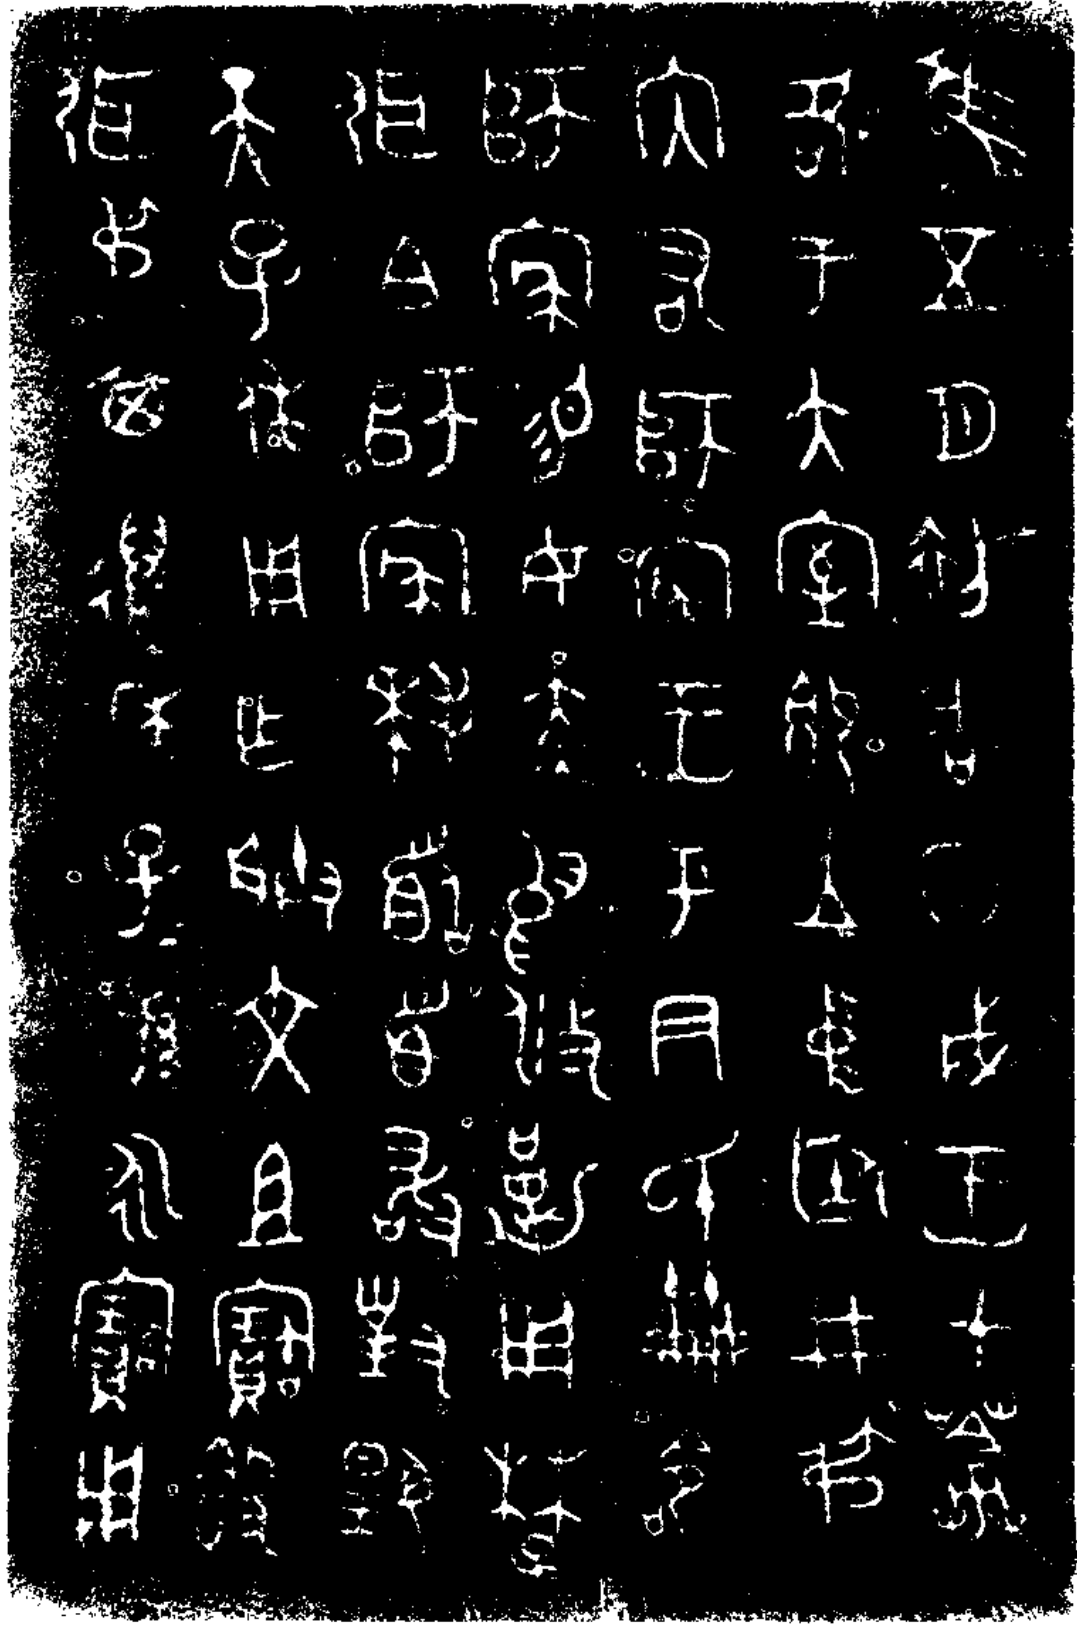 隹五月初吉甲戌王才𦶜
各于大室即立中廷井叔
內右師察王乎尹氏冊命
師察易女赤舄攸勒用楚
弭白師察拜𩒨首敢對揚
天子休用乍朕文且寶簋
弭叔其萬年子=孫=永寶用